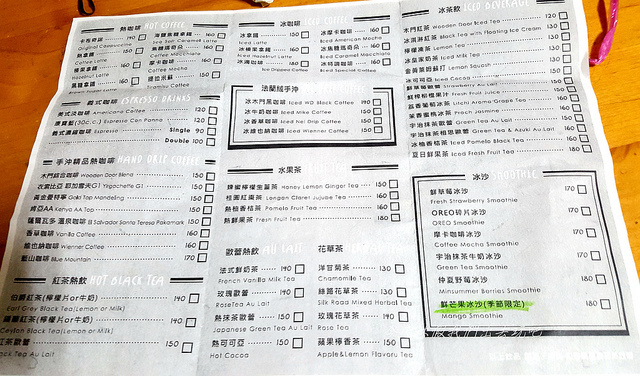 熱咖啡 HOT COFFEE
Original Cappuccino
Coffee Latte
Hazelnut Latte
Iced Sun Caramel Coffee
Coffee Macchiato
摩卡咖啡 160
Coffee Mocha
提拉米蘇 150
Tiramisu Coffee
義式咖啡 ESPRESSO DRINKS
美式淡咖啡 Americano Coffee 120
濃寶藍(30c.c.) Espresso Con Panna 120
義式濃縮咖啡 Espresso Single 90
Double 100
手沖精品熱咖啡 HAND DRIP COFFEE
木門綜合咖啡 Wooden Door Blend 150
衣索比亞 耶加雪夫G1 Yirgacheffe G1 150
黃金曼特寧 Gold Top Mandeling 150
肯亞AA Kenya AA Top 150
薩爾瓦多 溫泉咖啡 El Salvador Santa Teresa Pakamara 150
香草咖啡 Vanilla Coffee 160
維也納咖啡 Wenner Coffee 160
藍山咖啡 Blue Mountain 170
紅茶熱飲 HOT BLACK TEA
伯爵紅茶(檸檬片or牛奶) 140
Earl Grey Black Tea(Lemon or Milk)
錫蘭紅茶(檸檬片or牛奶) 140
Ceylon Black Tea(Lemon or Milk)
紅茶歐蕾 150
Black Tea Au Lait
冰咖啡 ICED COFFEE
冰拿鐵 150
Iced Latte
冰榛果拿鐵 160
Iced Hazelnut Latte
冰滴咖啡 180
Ice Dripped Coffee
冰摩卡咖啡 160
Iced American Mocha
冰焦糖瑪奇朵 160
Iced Caramel Macchiato
冰特調咖啡 160
Iced Special Coffee
法蘭絨手沖
冰木門黑咖啡 Iced WD Black Coffee 140
冰牛奶咖啡 Iced Milk Coffee 150
冰香草咖啡 Iced Nel Drip Coffee 150
冰維也納咖啡 Iced Wiener Coffee 150
水果茶
蜂蜜檸檬生薑茶 Honey Lemon Ginger Tea 150
桂圓紅棗茶 Longan Claret Jujube Tea 160
熱柚香桔茶 Pomelo Fruit Tea 160
熱鮮果茶 Fresh Fruit Tea 180
歐蕾熱飲 AU LAIT
法式鮮奶茶 140
French Vanilla Milk Tea
玫瑰歐蕾 140
RoseTea Au Lait
熱抹茶歐蕾 150
Japanese Green Tea Au Lait
熱可可亞 150
Hot Cocoa
花草茶
洋甘菊茶 130
Chamomile Tea
絲路花草茶 130
Silk Road Mixed Herbal Tea
玫瑰花草茶 140
Rose Tea
蘋果檸香茶 150
Apple&Lemon Flavoru Tea
冰茶飲 ICED BEVERAGE
木門紅茶 Wooden Door Iced Tea 120
冰淇淋紅茶 Black Tea with Floating Ice Cream 130
檸檬凍茶 Lemon Tea 130
冰皇家奶茶 Iced Milk Tea
金黃萊姆蘇打 Lemon Squash
冰可可亞 Iced Cocoa
鮮草莓歐蕾 Strawberry Au Lait
鮮榨柳橙果汁 Fresh Fruit Juice
荔香葡萄冰茶 Litchi Aroma Grape Tea 160
茉香蜜桃冰茶 Peach Jasmine Tea 160
宇治抹茶歐蕾 Green Tea Au Lait 150
宇治抹茶相思歐蕾 Green Tea & Azuki Au Lait 160
冰柚香桔茶 Iced Pomelo Black Tea 160
夏日鮮果茶 Iced Fresh Fruit Tea 180
冰沙 SMOOTHIE
鮮草莓冰沙 170
Fresh Strawberry Smoothie
OREO碎片冰沙 170
OREO Smoothie
摩卡咖啡冰沙 170
Coffee Mocha Smoothie
宇治抹茶牛奶冰沙 170
Green Tea Smoothie
仲夏野莓冰沙 180
Minsummer Berries Smoothie
鮮芒果冰沙(季節限定) 180
Mango Smoothie